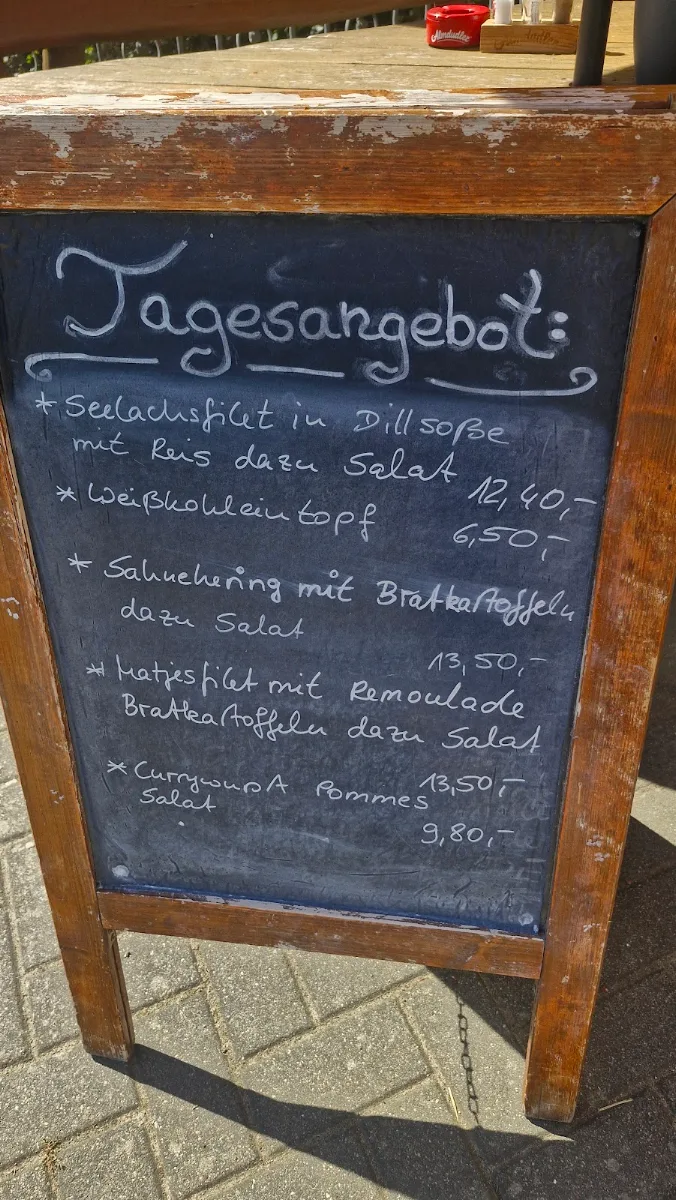 Almdudler
Tagesangebot:
* Seelachsfilet in Dillsoße
mit Reis dazu Salat 12,40,-
* Weißkohleintopf 6,50,-
* Sahnehering mit Bratkartoffeln
dazu Salat
13,50,-
* Matjesfilet mit Remoulade
Bratkartoffeln dazu Salat
13,50,-
* Currywurst Pommes
Salat
9,80,-